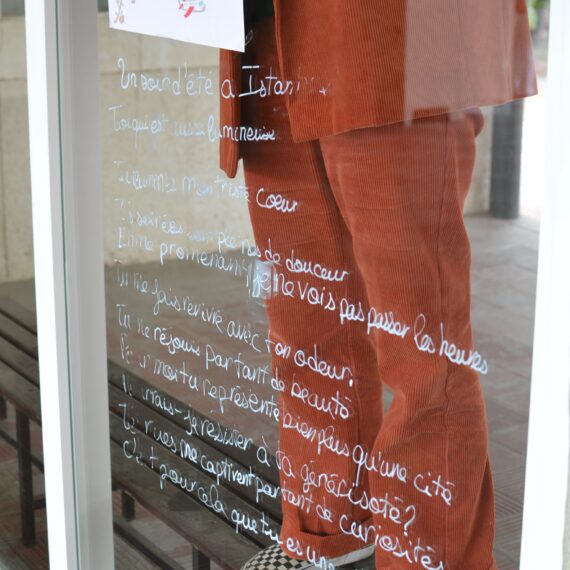 Un soir d'été a Istan
Toi qui est aussi lumineuse
Tu illumines mon triste coeur
Tes soirées sont pleines de douceur
En me promenant, je ne vois pas passer les heures
Tu me fais revivre avec ton odeur.
Tu me réjouis par tant de beauté
toi tu représente bien plus qu'une cité
résister à ta générosité?
Tes rues me captivent par tant de curiosités
C'est pour cela que tu es une